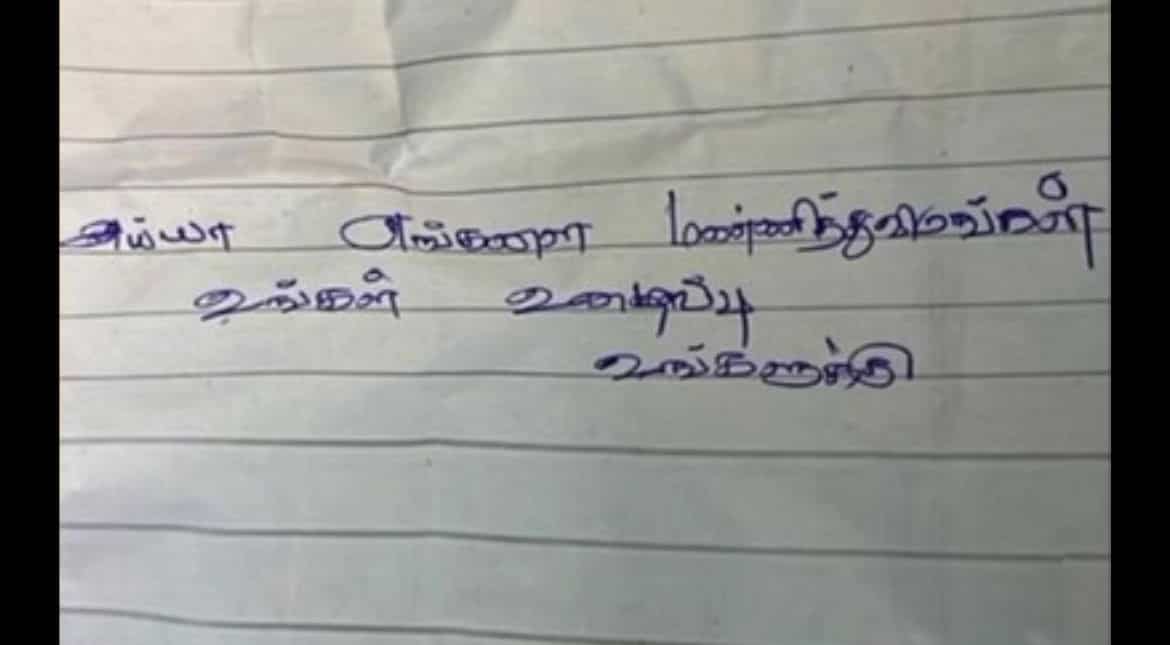 அய்யா எங்களை மன்னித்துவிடுங்கள்
உங்கள் உழைப்பு
உங்களுக்கு